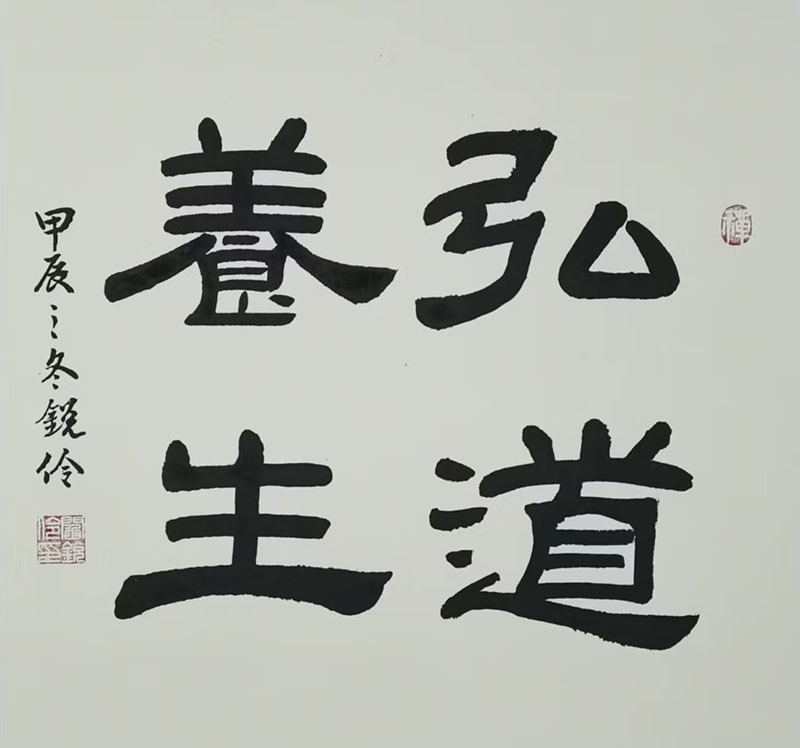 弘道
養生
甲辰之冬鋭伶